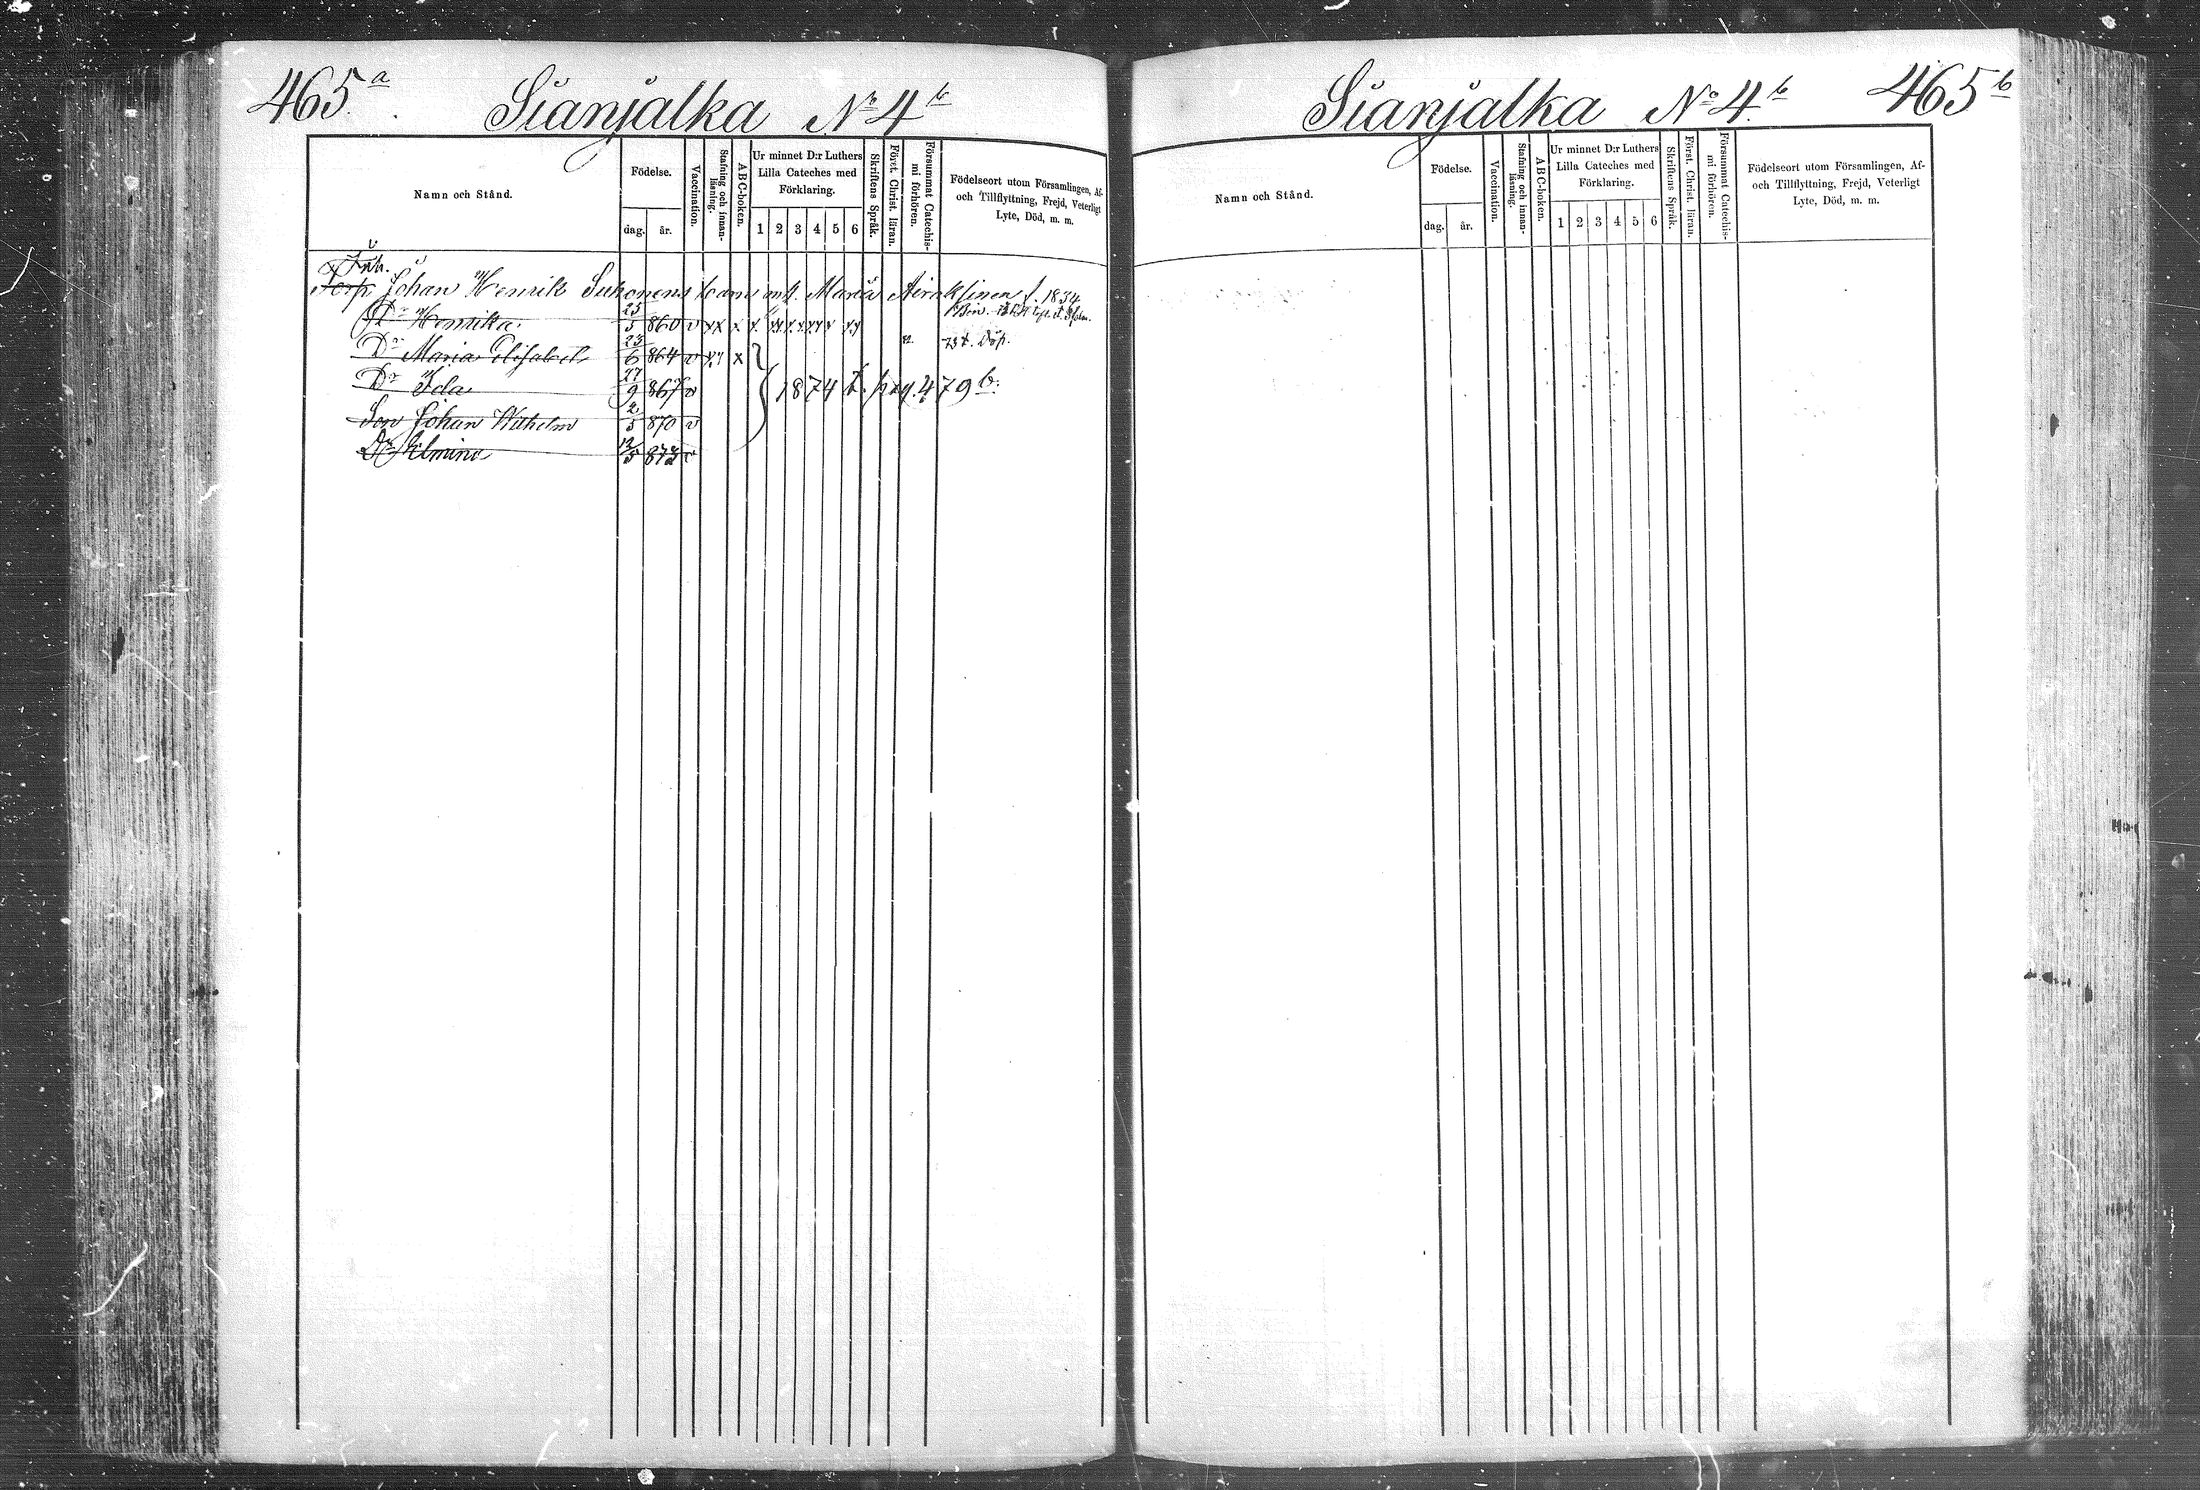 465 a
Sianjalka No 4 b
Namn och Stånd.
Födelse.
dag.
år.
Vaccination.
Stafning och innan-
läsning.
ABC-boken.
Ur minnet D:r Luthers
Lilla Cateches med
Förklaring.
1 2 3 4 5 6
Skriftens Språk.
Först. Christ. läran.
Försummat Catechis-
mi förhören.
Födelseort utom Församlingen, Af-
och Tillflyttning, Frejd, Veterligt
Lyte, Död, m. m.
Inh.
Torp. Johan Henrik Sukonens barn m. Maria Airaksinen f. 1834
Dr Henrika 25/5 860 v
Dr Maria Elisabet 23/6 864 v x
73 t. Döp.
Dr Ida 27/9 867 v 1874 t. pag. 479 b.
Son Johan Wilhelm 2/5 870 v
Dr Elmina 12/5 873 v
Sianjalka No 4 b
465 b
Namn och Stånd.
Födelse.
dag.
år.
Vaccination.
Stafning och innan-
läsning.
ABC-boken.
Ur minnet D:r Luthers
Lilla Cateches med
Förklaring.
1 2 3 4 5 6
Skriftens Språk.
Först. Christ. läran.
Försummat Catechis-
mi förhören.
Födelseort utom Församlingen, Af-
och Tillflyttning, Frejd, Veterligt
Lyte, Död, m. m.